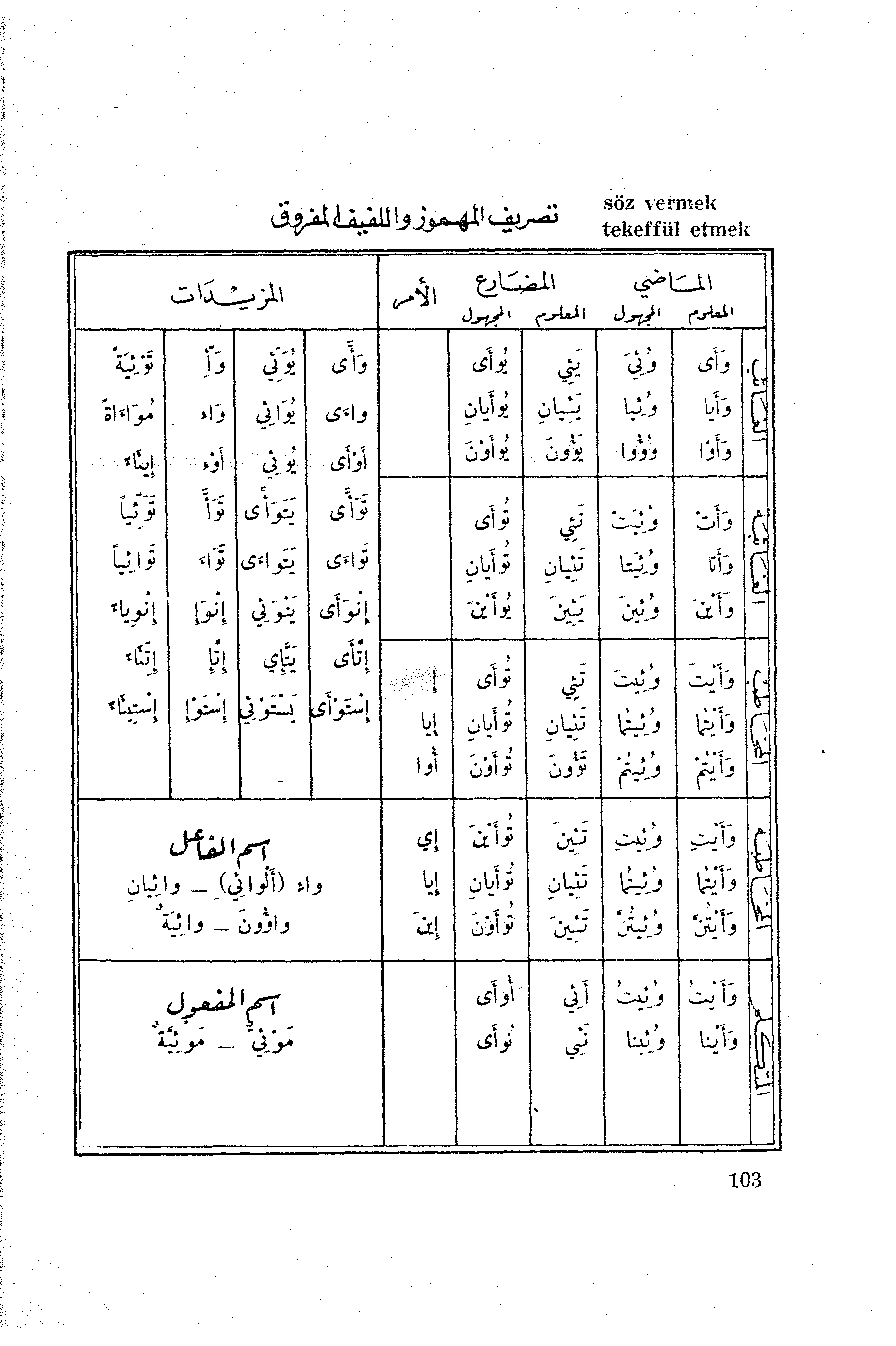 söz vermek
tekeffül etmek
تصريف المهموز واللفيف المفروق
الماضي المضارع الأمر المزيدات
المعلوم المجهول المعلوم المجهول
الغائب
وَأى وُئِيَ يَئِي يُوأى
وَأَيا وُئِيا يَئِيانِ يُوأَيانِ
وَأَوْا وُؤُوا يَؤُونَ يُوأَوْنَ
الغائبة
وَأَتْ وُئِيَتْ تَئِي تُوأى
وَأَتا وُئِيَتا تَئِيانِ تُوأَيانِ
وَأَيْنَ وُئِينَ يَئِينَ يُوأَيْنَ
المخاطب
وَأَيْتَ وُئِيتَ تَئِي تُوأى إِ
وَأَيْتُما وُئِيتُما تَئِيانِ تُوأَيانِ إِيا
وَأَيْتُمْ وُئِيتُمْ تَؤُونَ تُوأَوْنَ أُوا
المخاطبة
وَأَيْتِ وُئِيتِ تَئِينَ تُوأَيْنَ إِي
وَأَيْتُما وُئِيتُما تَئِيانِ تُوأَيانِ إِيا
وَأَيْتُنَّ وُئِيتُنَّ تَئِينَ تُوأَوْنَ إِينَ
المتكلم
وَأَيْتُ وُئِيتُ أَئِي أُوأى
وَأَيْنا وُئِينا نَئِي نُوأى
وَأَّى يُوَئِّي وَأِّ تَوْئِيَةً
واءَى يُوَائِي وَاءِ مُوَاءَاةً
أَوْأى يُوئِي أَوْءِ إِيئاءً
تَوَأَّى يَتَوَأَّى تَوَأَّ تَوَئِّياً
تَواءَى يَتَواءَى تَوَاءَ تَوائِياً
إِنْوَأى يَنْوَئِي إِنْوَإِ إِنْوِياءً
إِتَّأى يَتَّإِي إِتَّإِ إِتِّئاءً
إِسْتَوْأى يَسْتَوْئِي إِسْتَوْإِ إِسْتِيئاءً
اسم الفاعل
واءٍ (أَلْوائِي) – وائِيانِ
واؤُونَ – وائِيَةٌ
اسم المفعول
مَوْئِيٌّ – مَوْئِيَّةٌ
103